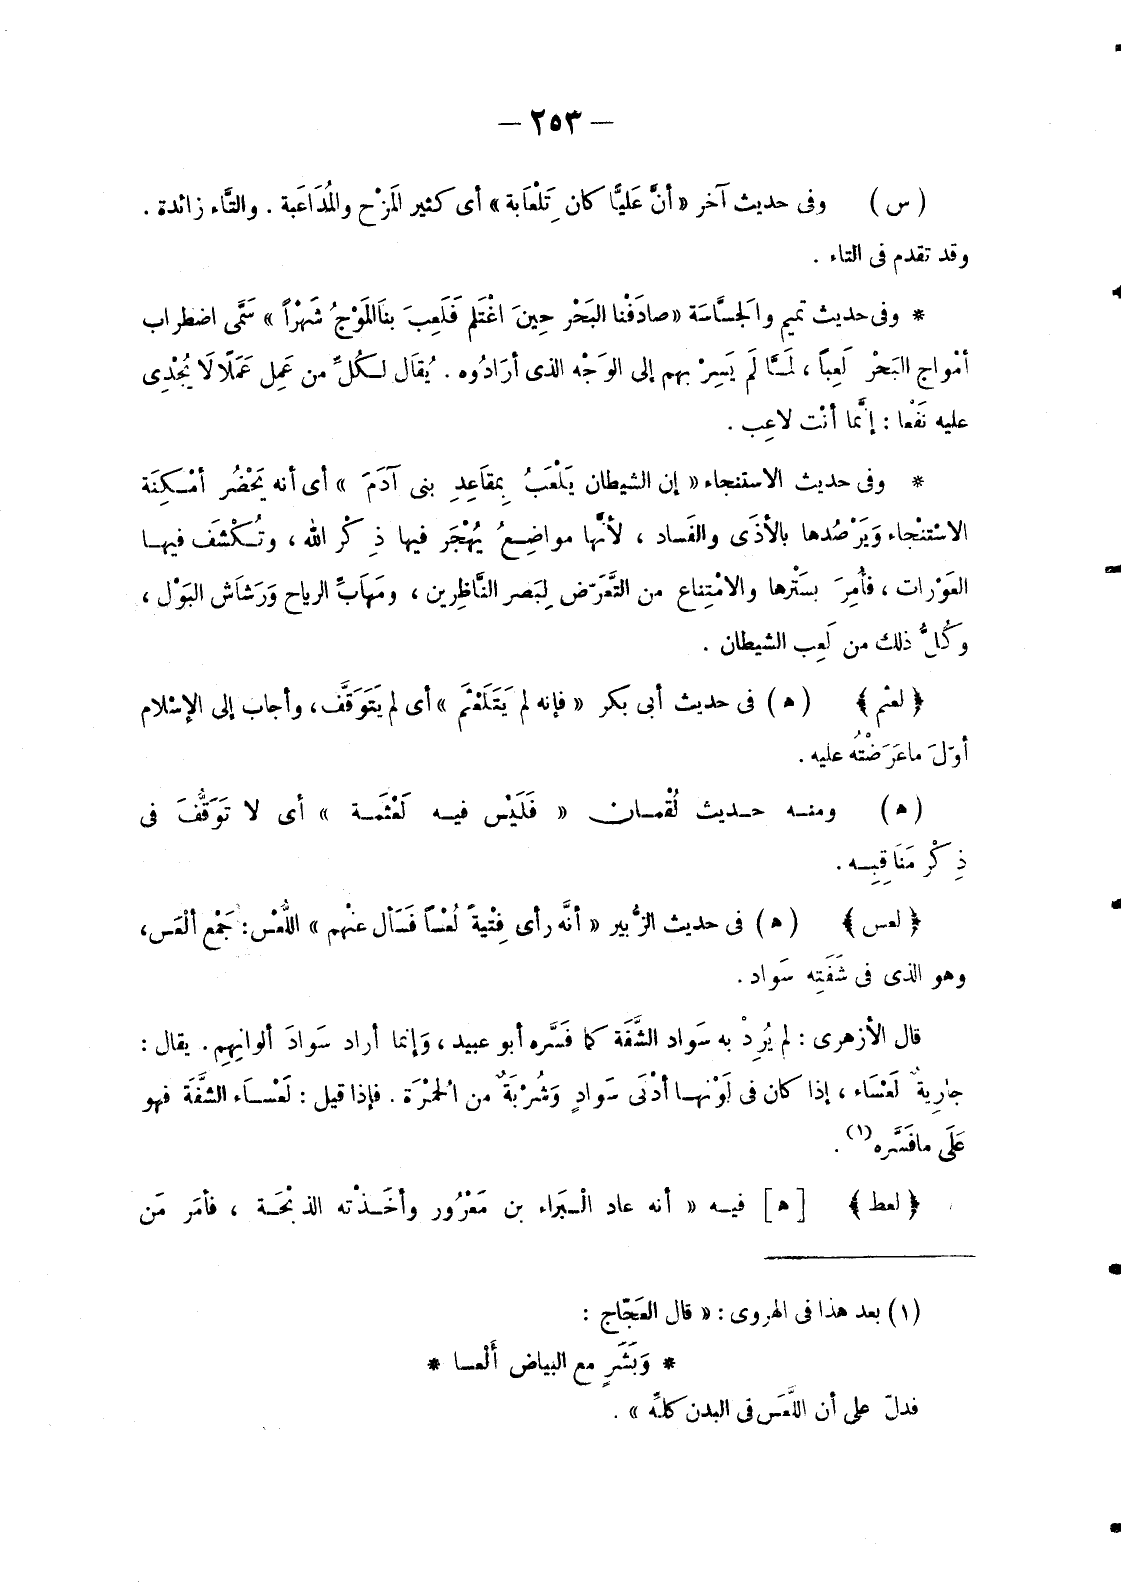 — ٢٥٣ —
( س ) وفى حديث آخر « أنَّ عَليًّا كان تِلْعَابة » أى كثير المَزْح والمُدَاعَبة . والتَّاء زائدة .
وقد تقدم فى التاء .
* وفى حديث تميم والجَسَّاسَة « صادَفْنا البَحْر حِينَ اغْتَلم فَلَعِبَ بنا المَوْجُ شَهْراً » سَمَّى اضطراب
أمْواج البَحْر لَعِباً ، لمَّا لَم يَسِرْ بهم إلى الوَجْه الذى أرَادُوه . يُقَال لكُلِّ من عَمِل عَمَلًا لَا يُجْدِى
عليه نَفْعا : إنَّما أنْت لاعِب .
* وفى حديث الاستنجاء « إن الشيطان يَلْعَبُ بِمقاَعِدِ بنى آدَمَ » أى أنه يَحْضُر أمْكِنَة
الاسْتنْجاء وَيَرْصُدها بالأذَى والفَساد ، لأنَّها مواضِعُ يُهْجَر فيها ذِكْر الله ، وتُكْشَف فيها
العَوْرات ، فأُمِرَ بسَتْرها والامْتِناع من التَّعَرّض لِبَصر النَّاظِرين ، ومَهَابِّ الرياح وَرَشاَش البَوْل ،
وكُلُّ ذلك من لَعِب الشيطان .
﴿ لعثم ﴾ ( ه ) فى حديث أبى بكر « فإنه لم يَتَلَعْثَم » أى لم يَتَوَقَّف ، وأجاب إلى الإسْلام
أوّلَ ماعَرَضْتُه عليه .
( ه ) ومنه حديث لُقْمان « فَلَيْس فيه لَعْثَمة » أى لا تَوَقُّفَ فى
ذِكْر مَنَاقِبِه .
﴿ لعس ﴾ ( ه ) فى حديث الزُّبير « أنَّه رأى فِتْيةً لُعْساً فَسَأل عنْهم » اللُّعْس : جَمْع ألْعَس ،
وهو الذى فى شَفَتِه سَواد .
قال الأزهرى : لم يُرِدْ به سَواد الشَّفَة كما فَسَّره أبو عبيد ، وَإنما أراد سَوادَ ألوانِهِم . يقال :
جارِيةٌ لَعْسَاء ، إذا كان فى لَوْنها أدْنَى سَوادٍ وَشُرْبَةٌ من الحُمْرَة . فإذا قيل : لَعْسَاء الشَّفَة فهو
عَلَى مافَسَّره (١) .
﴿ لعط ﴾ [ ه ] فيه « أنه عاد الْبَرَاء بن مَعْرُور وأخَذَتْه الذبْحَة ، فأمَر مَن
(١) بعد هذا فى الهروى : « قال العَجّاج :
* وَبَشَرٍ مع البياض ألْعسا *
فدلّ على أن اللَّعَس فى البدن كلِّه » .